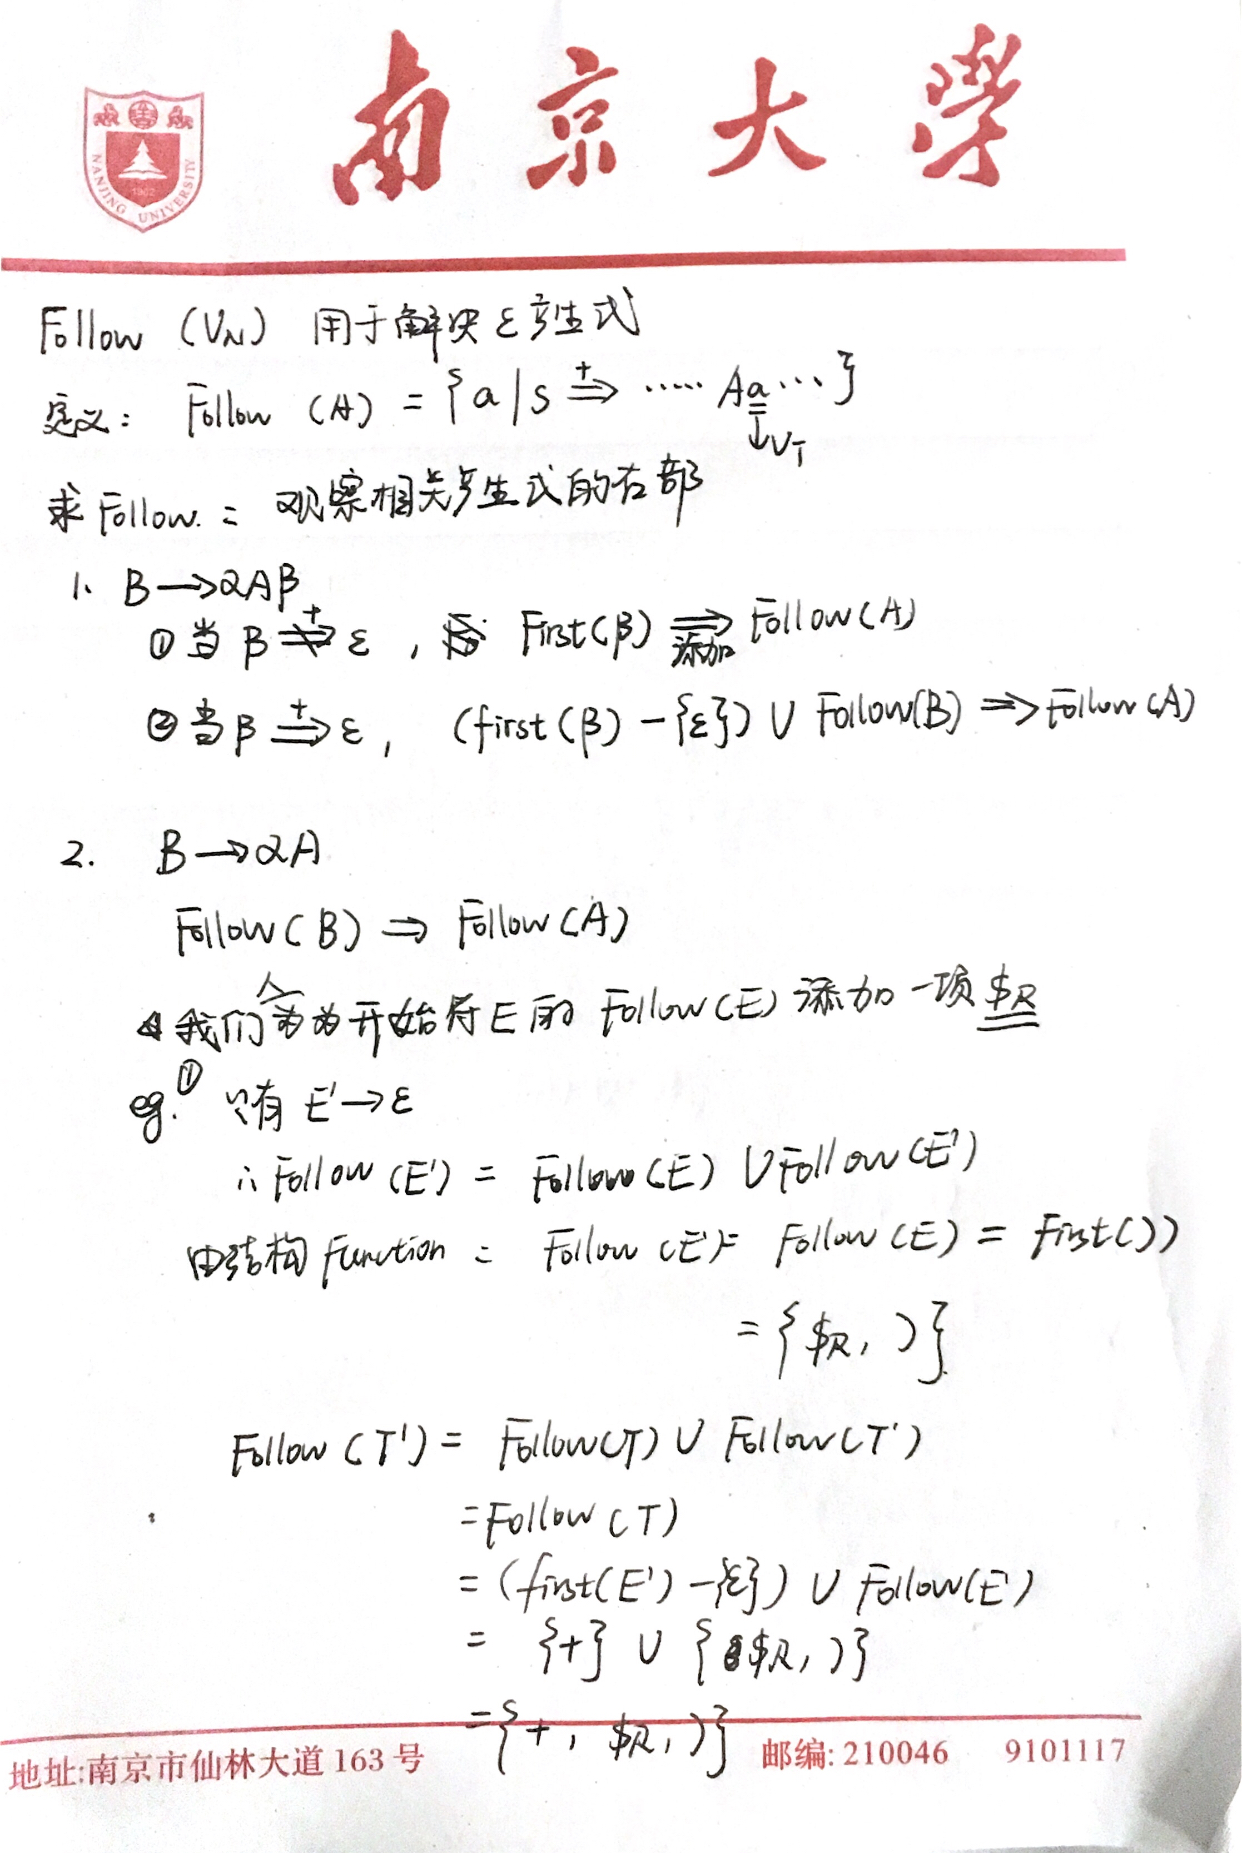 南京大学
NANJING UNIVERSITY
1902
Follow (V_N) 用于解决 ε 产生式
定义: Follow (A) = {a | S ⇒⁺ ····· Aa ···}
↓V_T
求 Follow: 观察相关产生式的右部
1. B → αAβ
① 当 β ⇏⁺ ε , First(β) ⇒ Follow(A)
添加
② 当 β ⇒⁺ ε, (first(β) - {ε}) ∪ Follow(B) ⇒ Follow(A)
2. B → αA
Follow(B) ⇒ Follow(A)
我们人为为开始符 E 的 Follow(E) 添加一项 $R
eg.① 只有 E' → ε
∴ Follow (E') = Follow (E) ∪ Follow (E')
由结构 Function : Follow (E') = Follow (E) = First( ) )
= { $R, ) }
Follow (T') = Follow(T) ∪ Follow(T')
= Follow (T)
= (first(E') - {ε}) ∪ Follow(E')
= {+} ∪ { $R, ) }
= { +, $R, ) }
地址:南京市仙林大道 163 号 邮编: 210046 9101117